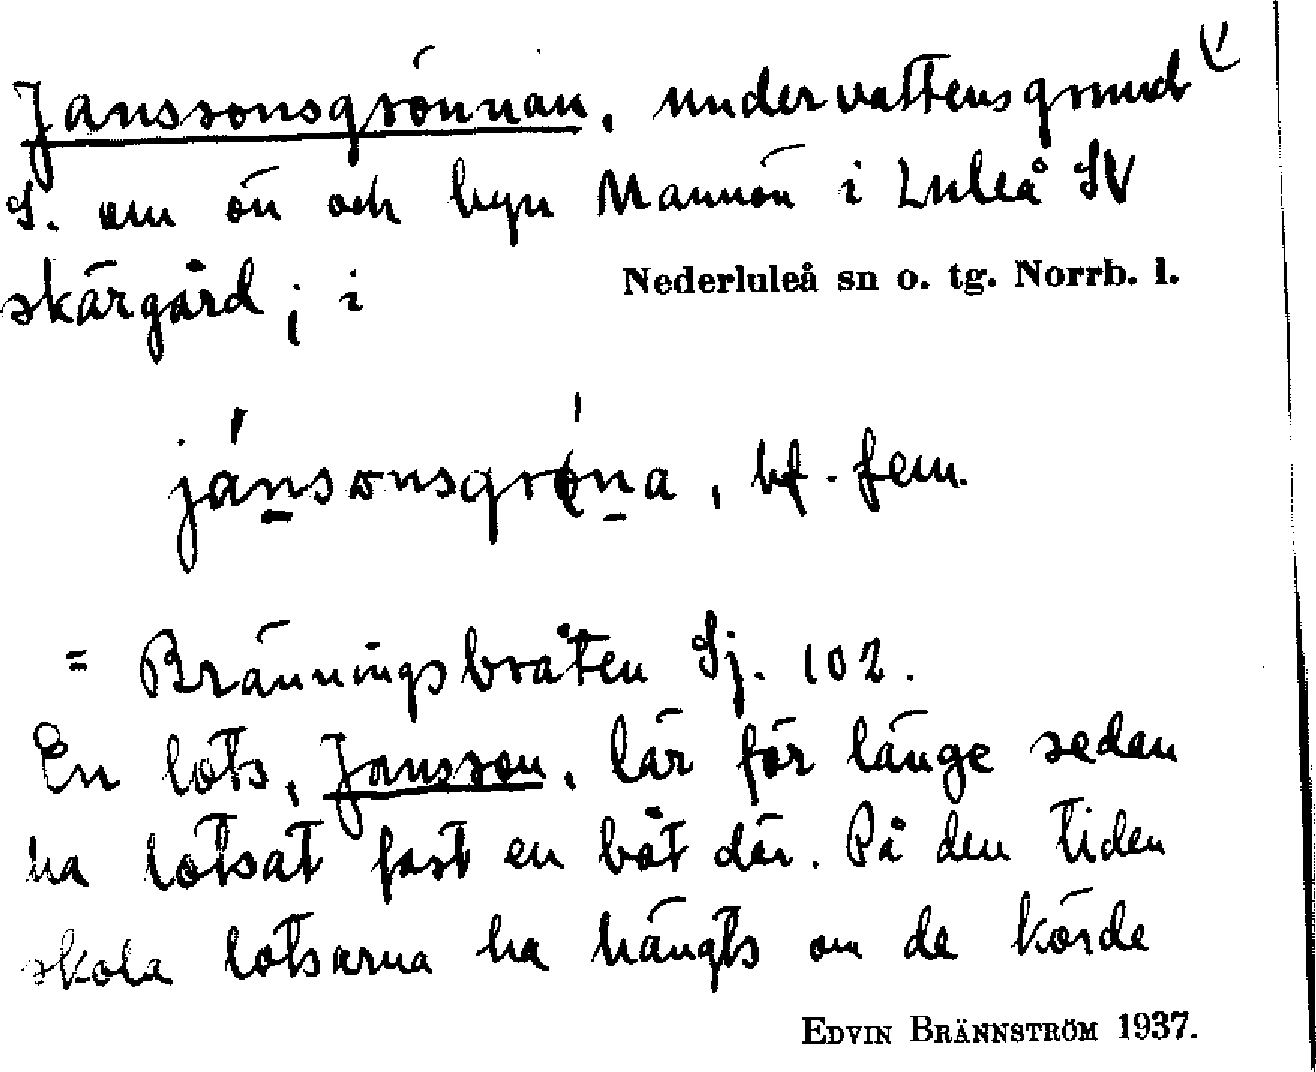 Janssonsgrönnan, undervattensgrund
S. om ön och byn Mannön i Luleå SV
skärgård; i Nederluleå sn o. tg. Norrb. l.
jánsonsgrøna, bf. fem.
= Bränningsbråten Sj. 102.
En lots, Jansson, lär för länge sedan
ha lotsat fast en båt där. På den tiden
skola lotsarna ha hängts om de körde
EDVIN BRÄNNSTRÖM 1937.